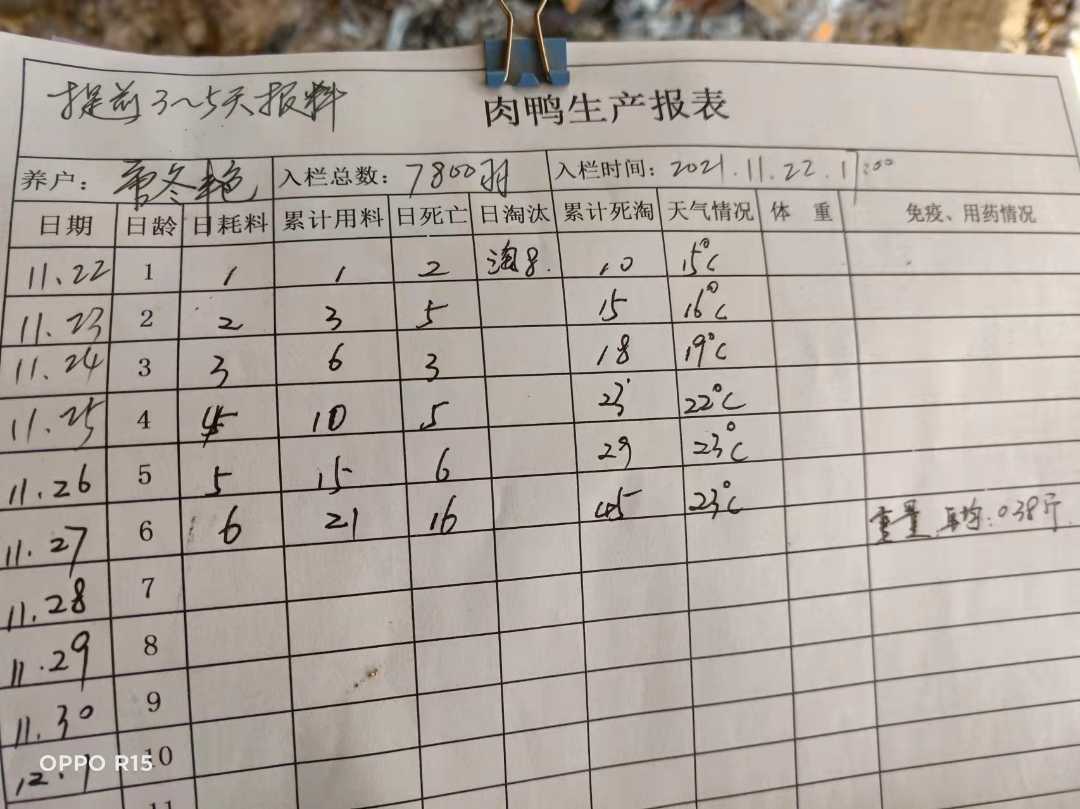 提前3~5天报料 肉鸭生产报表
养户： 冬艳 入栏总数：7800羽 入栏时间：2021.11.22.17:00
日期 日龄 日耗料 累计用料 日死亡 日淘汰 累计死淘 天气情况 体 重 免疫、用药情况
11.22 1 1 1 2 淘8. 10 15°C
11.23 2 2 3 5 15 16°C
11.24 3 3 6 3 18 19°C
11.25 4 4 10 5 23 22°C
11.26 5 5 15 6 29 23°C
11.27 6 6 21 16 45 23°C 重量 平均:0.38斤
11.28 7
11.29 8
11.30 9
12.1 10
11
OPPO R15